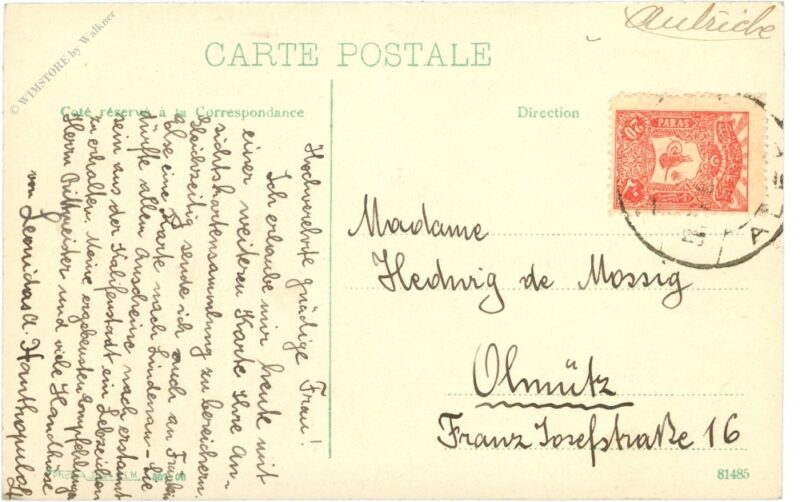 © WIMSTORE by Walkner
Autriche
CARTE POSTALE
Coté réservé à la Correspondance
Direction
20
PARAS
ALEY
Madame
Hedwig de Mossig
Olmütz
Franz Josefstraße 16
Hochverehrte gnädige Frau!
Ich erlaube mir heute mit
einer weiteren Karte Ihre An-
sichtskartensammlung zu bereichern.
Gleichzeitig sende ich auch an Fräulein
Else eine Karte nach Lindenau – Sie
dürfte allen Anscheine nach erstaunt
sein aus der Kalifenstadt ein Lebzeichen
zu erhalten. Meine ergebensten Empfehlungen
Herrn Rittmeister und viele Handküsse
von Leonidas A.
81485